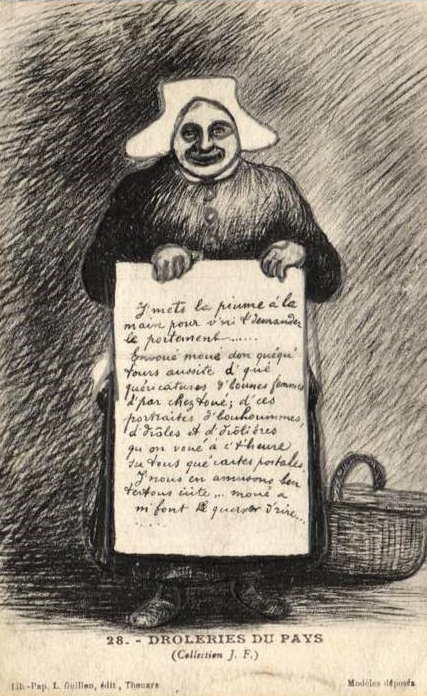 J'mets la piume à la
main pour v'ni t'demander
le portement.......
Envoué moué don quéqu'
tours aussite d'qué
quéricatures d'bounes femmes
d'par cheztoué; d'ces
portraites d'bouhoummes,
d'drôles et d'drôlières
qu'on voué à c't'heure
su tous qué cartes postales
J'nous en amusons ben
tertous icite... moué a
m'font querver d'rire...
......
28. - DROLERIES DU PAYS
(Collection J. F.)
Lib.-Pap. L. Guillon, édit, Thouars
Modèles déposés